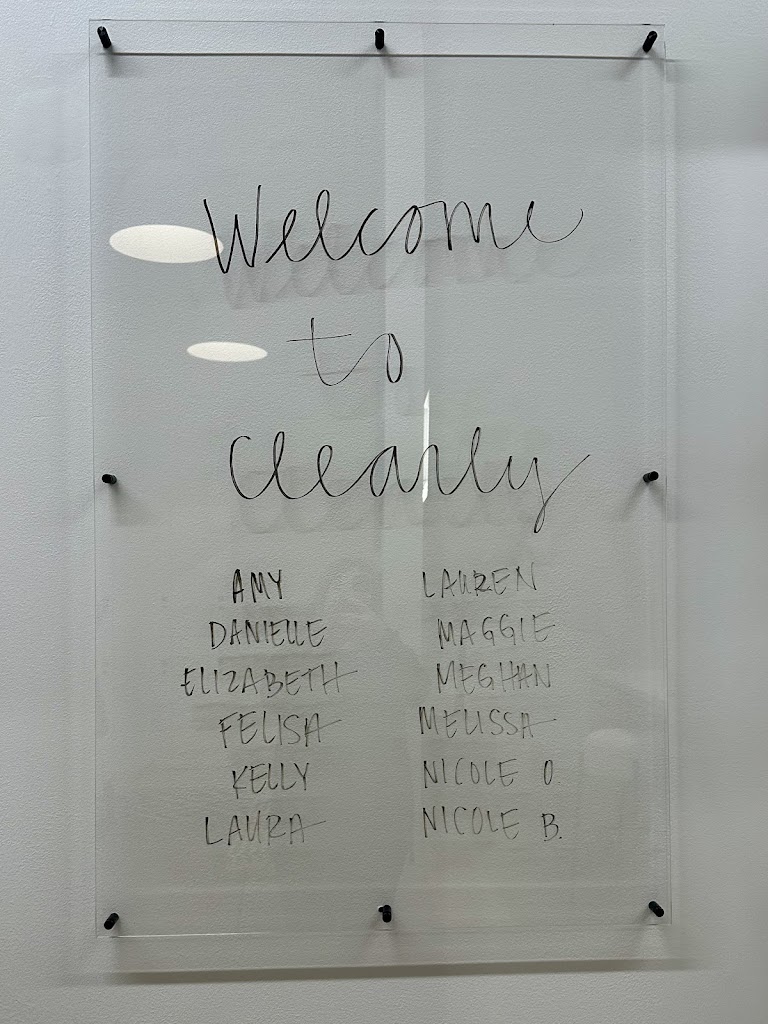 Welcome
to
Clearly
AMY
DANIELLE
ELIZABETH
FELISA
KELLY
LAURA
LAUREN
MAGGIE
MEGHAN
MELISSA
NICOLE O.
NICOLE B.